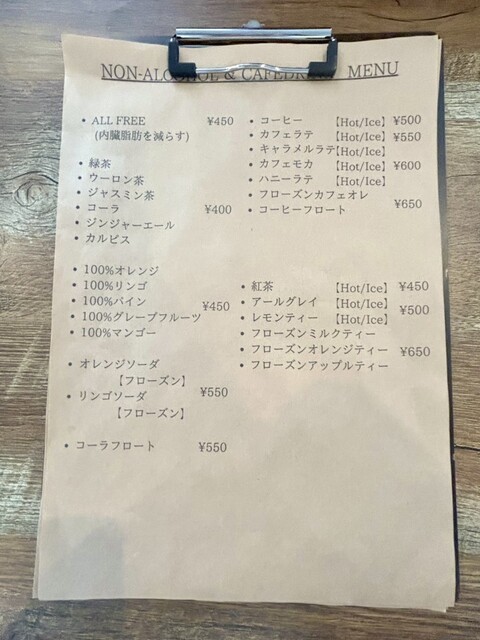 NON-ALCOHOL & CAFEDRINK MENU
• ALL FREE ¥450
(内臓脂肪を減らす)
• 緑茶
• ウーロン茶
• ジャスミン茶
• コーラ ¥400
• ジンジャーエール
• カルピス
• 100%オレンジ
• 100%リンゴ
• 100%パイン ¥450
• 100%グレープフルーツ
• 100%マンゴー
• オレンジソーダ
【フローズン】 ¥550
• リンゴソーダ
【フローズン】
• コーラフロート ¥550
• コーヒー 【Hot/Ice】 ¥500
• カフェラテ 【Hot/Ice】 ¥550
• キャラメルラテ【Hot/Ice】
• カフェモカ 【Hot/Ice】 ¥600
• ハニーラテ 【Hot/Ice】
• フローズンカフェオレ ¥650
• コーヒーフロート
• 紅茶 【Hot/Ice】 ¥450
• アールグレイ 【Hot/Ice】 ¥500
• レモンティー 【Hot/Ice】
• フローズンミルクティー
• フローズンオレンジティー ¥650
• フローズンアップルティー